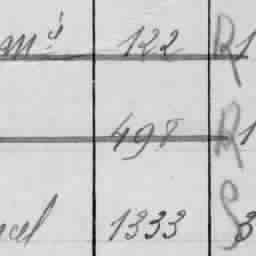 122 R1
498 R1
1333 S3